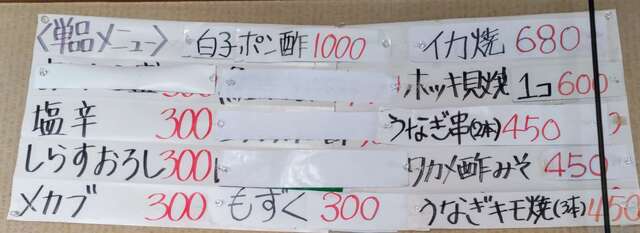 〈単品メニュー〉
白子ポン酢 1000
イカ焼 680
ホッキ貝焼 1コ 600
塩辛 300
うなぎ串(2本) 450
しらすおろし 300
ワカメ酢みそ 450
メカブ 300
もずく 300
うなぎキモ焼(3本) 450